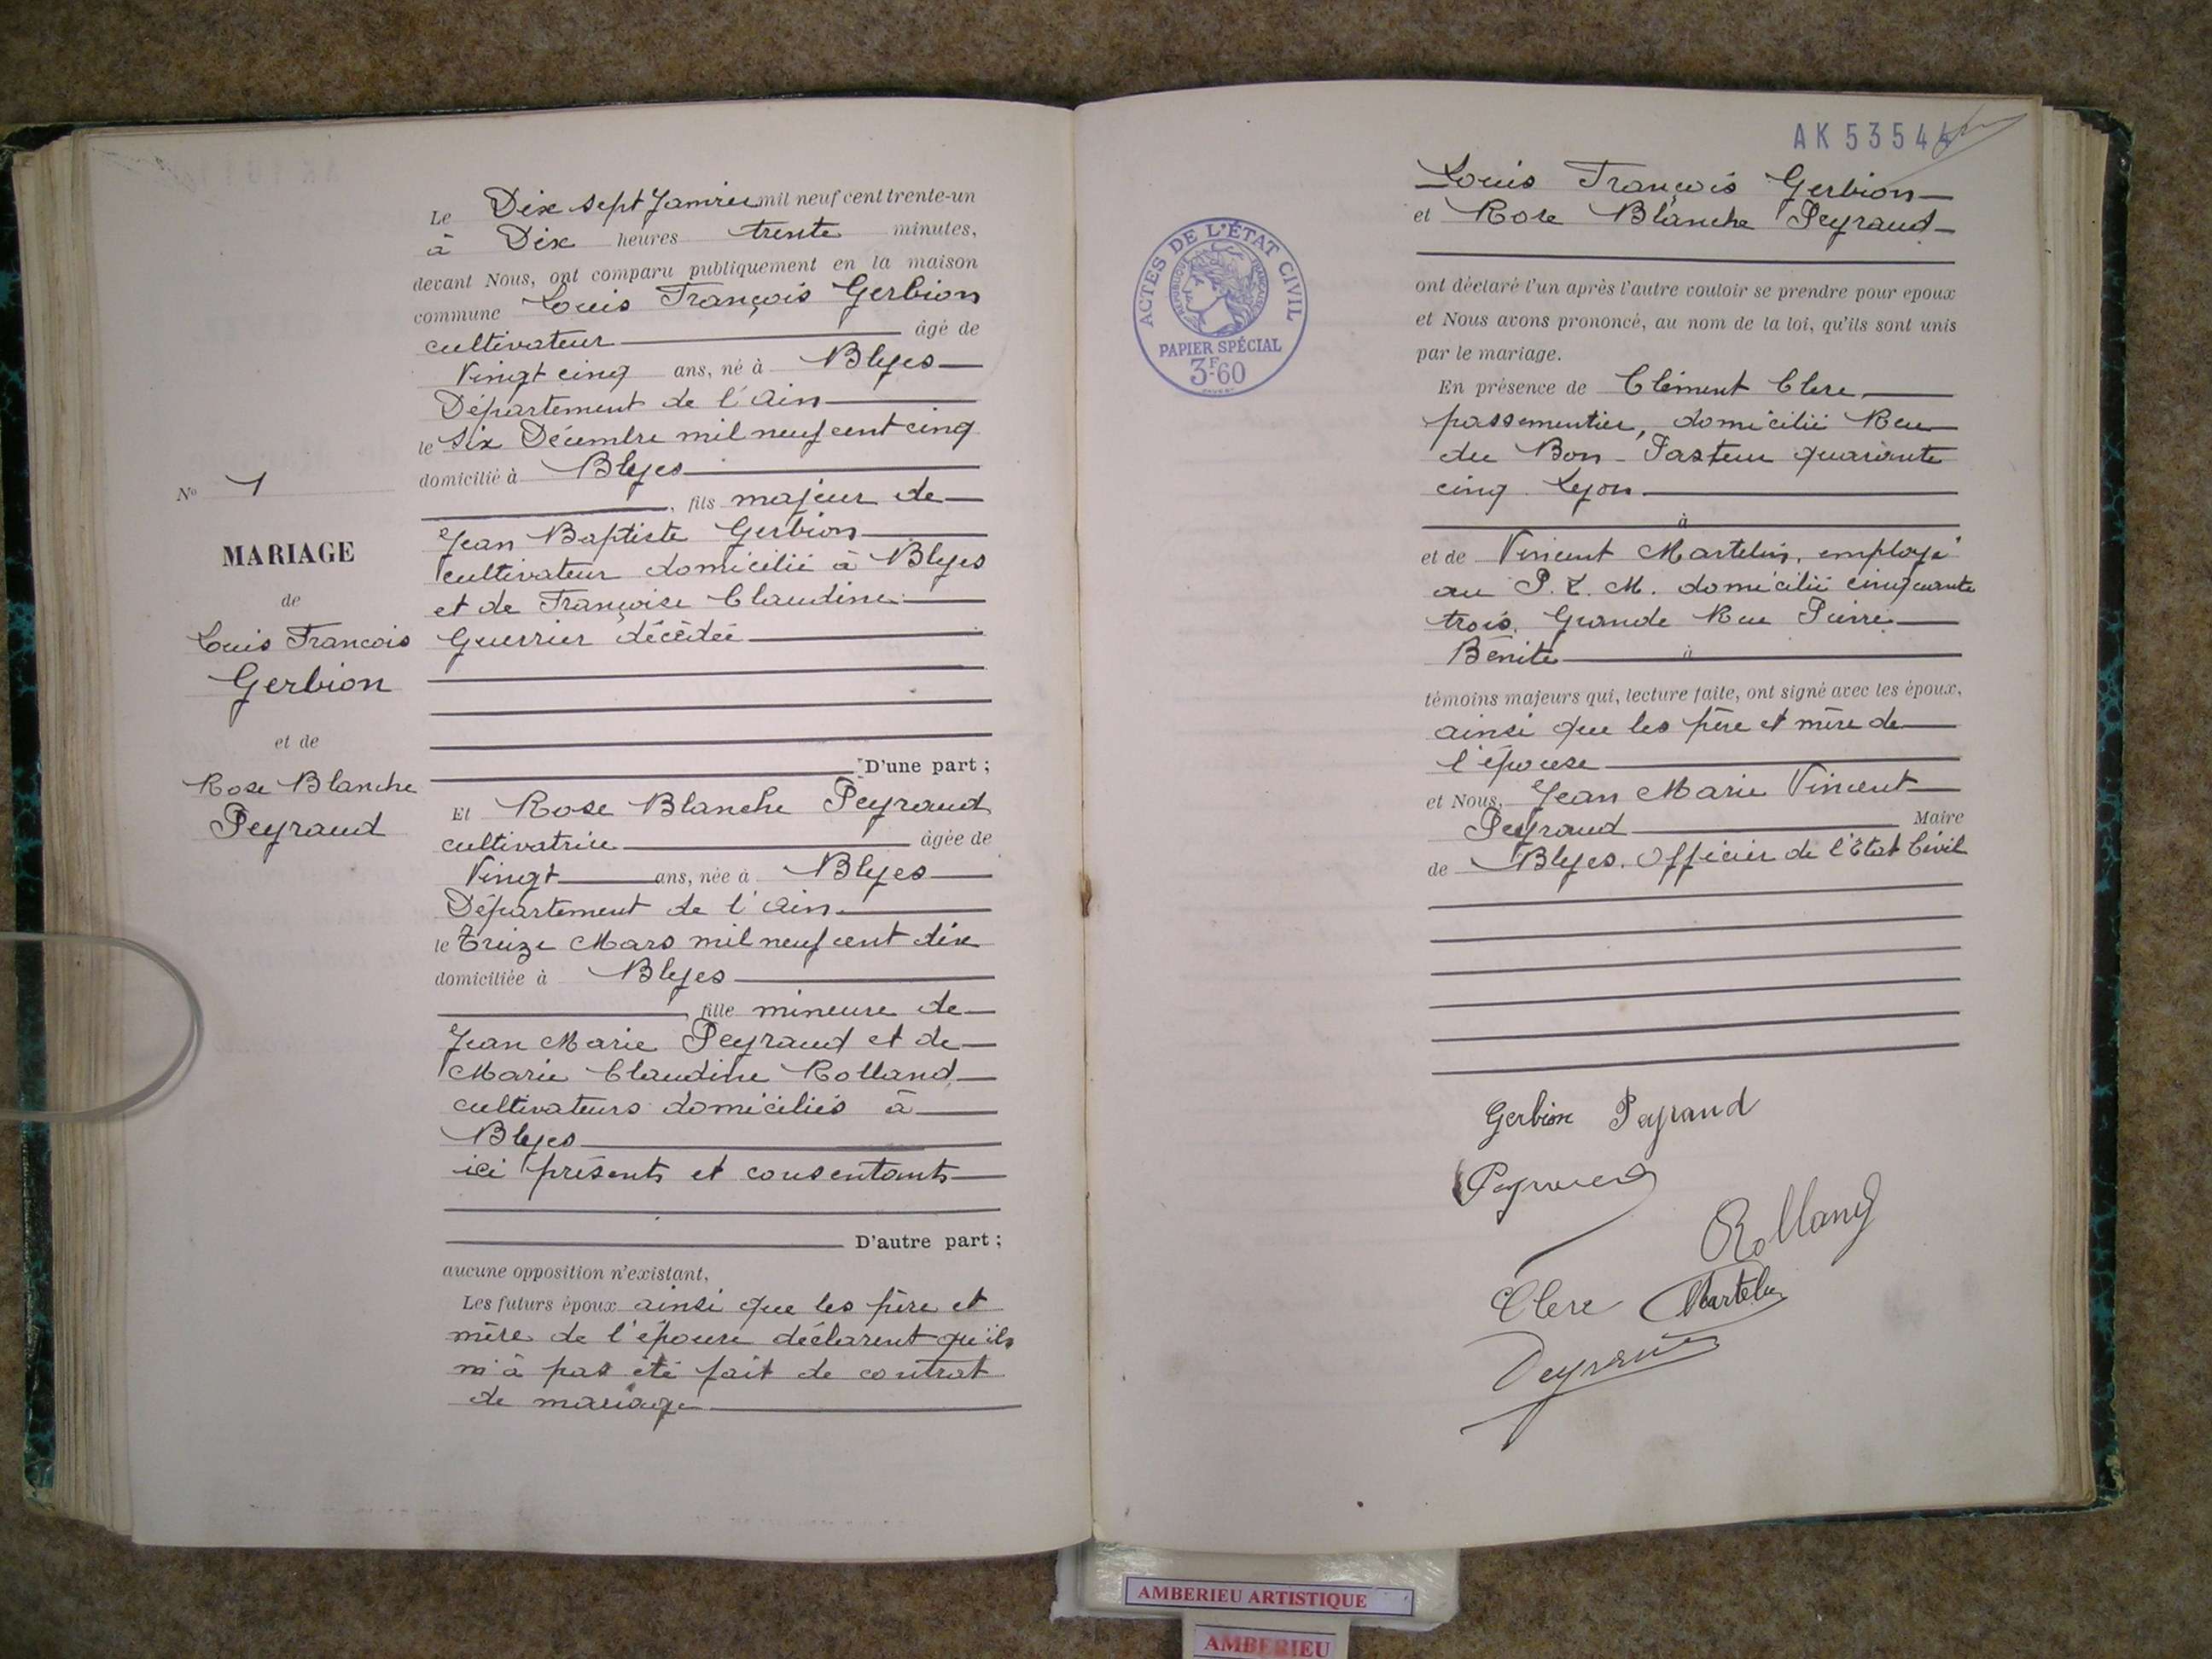 Le Dix sept Janvier mil neuf cent trente-un
à Dix heures trente minutes,
devant Nous, ont comparu publiquement en la maison
commune Louis François Gerbion
cultivateur âgé de
Vingt cinq ans, né à Blyes
Département de l'Ain
le Six Décembre mil neuf cent cinq
domicilié à Blyes
, fils majeur de
Jean Baptiste Gerbion
cultivateur domicilié à Blyes
et de Françoise Claudine
Guerrier décédée
D'une part ;
No 1
MARIAGE
de
Louis François
Gerbion
et de
Rose Blanche
Peyraud
Et Rose Blanche Peyraud
cultivatrice âgée de
Vingt ans, née à Blyes
Département de l'Ain
le Treize Mars mil neuf cent dix
domiciliée à Blyes
, fille mineure de
Jean Marie Peyraud et de
Marie Claudine Rolland
cultivateurs domiciliés à
Blyes
ici présents et consentants
D'autre part ;
aucune opposition n'existant,
Les futurs époux ainsi que les père et
mère de l'épouse déclarent qu'ils
n'a pas été fait de contrat
de mariage
AK 53544
ACTES DE L'ÉTAT CIVIL
RÉPUBLIQUE FRANÇAISE
PAPIER SPÉCIAL
3F-60
Louis François Gerbion
et Rose Blanche Peyraud
ont déclaré l'un après l'autre vouloir se prendre pour epoux
et Nous avons prononcé, au nom de la loi, qu'ils sont unis
par le mariage.
En présence de Clément Clere,
passementier, domicilié Rue
du Bon-Pasteur quarante
cinq Lyon
à
et de Vincent Martelin, employé
au P. L. M. domicilié cinquante
trois, Grande Rue Pierre
Bénite à
témoins majeurs qui, lecture faite, ont signé avec les époux,
ainsi que les père et mère de
l'épouse
et Nous, Jean Marie Vincent
Peyraud Maire
de Blyes. Officier de l'Etat Civil
Gerbion Peyraud
Peyraud
Rolland
Clere Martelin
Peyraud
AMBERIEU ARTISTIQUE
AMBERIEU